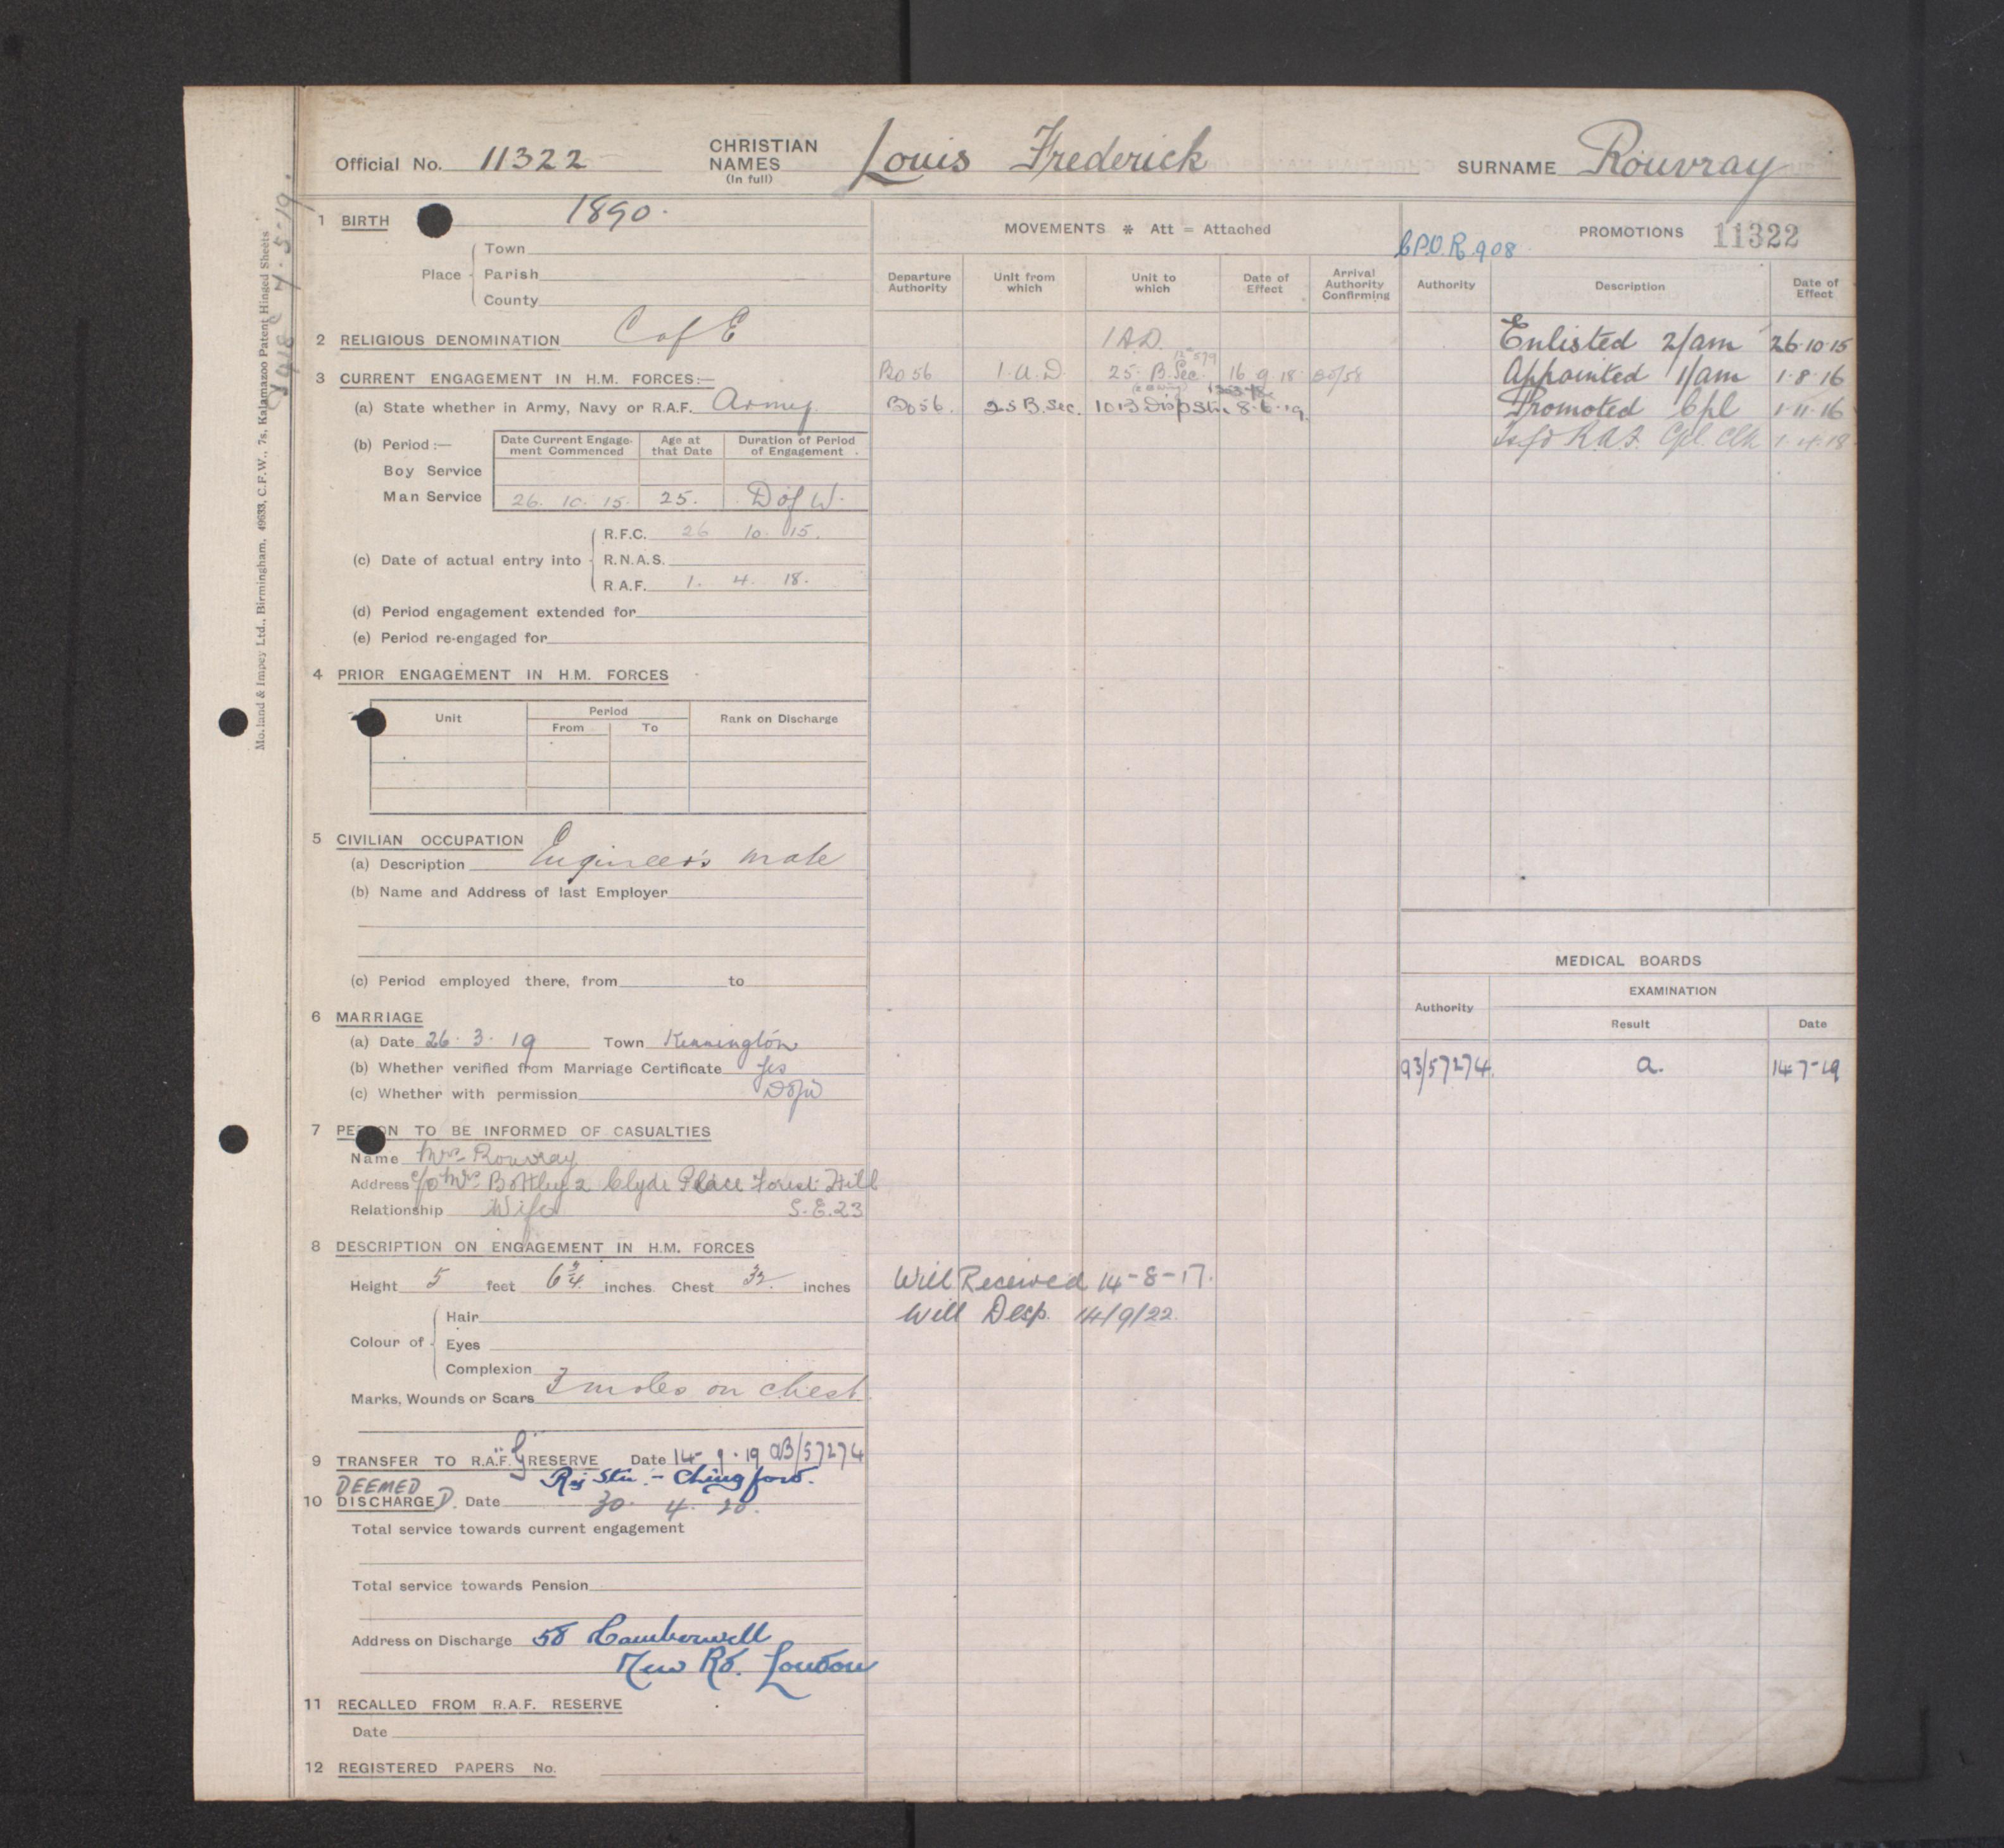 Official No. 11322 CHRISTIAN NAMES (In full) Louis Frederick SURNAME Rouvray
1 BIRTH 1890.
Town
Place Parish
County
2 RELIGIOUS DENOMINATION C of E
3 CURRENT ENGAGEMENT IN H.M. FORCES:—
(a) State whether in Army, Navy or R.A.F. Army
(b) Period :— Date Current Engagement Commenced Age at that Date Duration of Period of Engagement
Boy Service
Man Service 26. 10. 15. 25. D of W.
(c) Date of actual entry into R.F.C. 26 10. 15.
R.N.A.S.
R.A.F. 1. 4. 18.
(d) Period engagement extended for
(e) Period re-engaged for
4 PRIOR ENGAGEMENT IN H.M. FORCES
Unit Period Rank on Discharge
From To
5 CIVILIAN OCCUPATION
(a) Description Engineer's mate
(b) Name and Address of last Employer
(c) Period employed there, from to
6 MARRIAGE
(a) Date 26. 3. 19 Town Kennington
(b) Whether verified from Marriage Certificate Yes
(c) Whether with permission
7 PERSON TO BE INFORMED OF CASUALTIES
Name Mrs Rouvray
Address c/o Mrs Bottley 2 Clyde Place Forest Hill
Relationship Wife S.E.23
8 DESCRIPTION ON ENGAGEMENT IN H.M. FORCES
Height 5 feet 6 3/4 inches Chest 32 inches
Colour of Hair
Eyes
Complexion
Marks, Wounds or Scars 3 moles on chest
9 TRANSFER TO R.A.F. "G" RESERVE Date 14-9-19 a3/57274
Rej Stn. - Chingford.
DEEMED
10 DISCHARGED. Date 30. 4. 20.
Total service towards current engagement
Total service towards Pension
Address on Discharge 58 Camberwell
New Rd. London
11 RECALLED FROM R.A.F. RESERVE
Date
12 REGISTERED PAPERS No.
MOVEMENTS * Att = Attached
Departure Authority Unit from which Unit to which Date of Effect Arrival Authority Confirming
1 A.D.
Bo 56 1.A.D 25. B.Sec. 16 9 18
Bo 56. 25 B.Sec. 101 B Disp Stn 8.6.19.
Will Received 14-8-17.
Will Desp. 14/9/22.
C.P.O.R. 908 PROMOTIONS 11322
Authority Description Date of Effect
Enlisted 2/am 26.10.15
Appointed 1/am 1.8.16
Promoted Cpl 1.11.16
Tsfd R.A.F. Cpl Clk 1.4.18
MEDICAL BOARDS
Authority EXAMINATION
Result Date
a3/57274. a. 14-7-19
Mo.land & Impey Ltd., Birmingham, 49633, C.F.W., 7s, Kalamazoo Patent Hinged Sheets